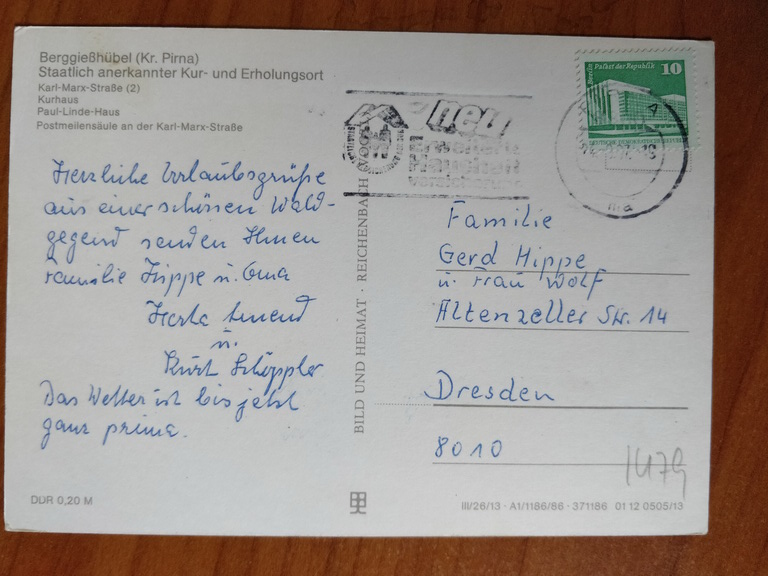 Berggießhübel (Kr. Pirna)
Staatlich anerkannter Kur- und Erholungsort
Karl-Marx-Straße (2)
Kurhaus
Paul-Linde-Haus
Postmeilensäule an der Karl-Marx-Straße
Herzliche Urlaubsgrüße
aus einer schönen Wald-
gegend senden Ihnen
Familie Hippe u. Oma
Herta
u.
Kurt Schöppler
Das Wetter ist bis jetzt
ganz prima.
DDR 0,20 M
BILD UND HEIMAT · REICHENBACH
neu
Erweiterte
Haushalt
versicherung
Berlin Palast der Republik
10
Familie
Gerd Hippe
u. Frau Wolf
Altenzeller Str. 14
Dresden
8010
1479
III/26/13 · A1/1186/86 · 371186 01 12 0505/13